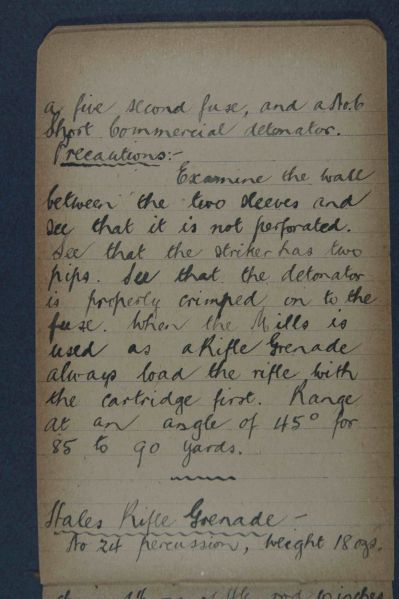 a five second fuse, and a No. 6
Short Commercial detonator.
Precautions:-
Examine the wall
between the two sleeves and
see that it is not perforated.
See that the striker has two
pips. See that the detonator
is properly crimped on to the
fuse. When the Mills is
used as a Rifle Grenade
always load the rifle with
the cartridge first. Range
at an angle of 45° for
85 to 90 yards.
Hales Rifle Grenade -
No 24 percussion, Weight 18 ozs.